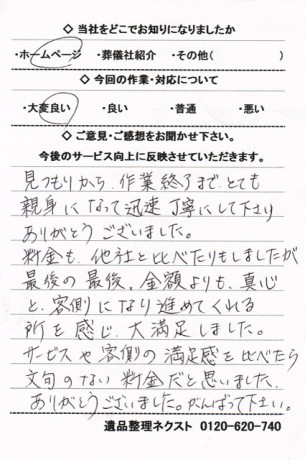 ◇ 当社をどこでお知りになりましたか
・ホームページ ・葬儀社紹介 ・その他( )
◇ 今回の作業・対応について
・大変良い ・良い ・普通 ・悪い
◇ ご意見・ご感想をお聞かせ下さい。
今後のサービス向上に反映させていただきます。
見つもりから、作業終了まで、とても
親身になって迅速丁寧にして下さり
ありがとうございました。
料金も、他社と比べたりもしましたが
最後の最後、金額よりも、真心
と、客側になり進めてくれる
所を感じ、大満足しました。
サービスや客側の満足感を比べたら
文句のない料金だと思いました、
ありがとうございました。がんばって下さい。
遺品整理ネクスト 0120-620-740